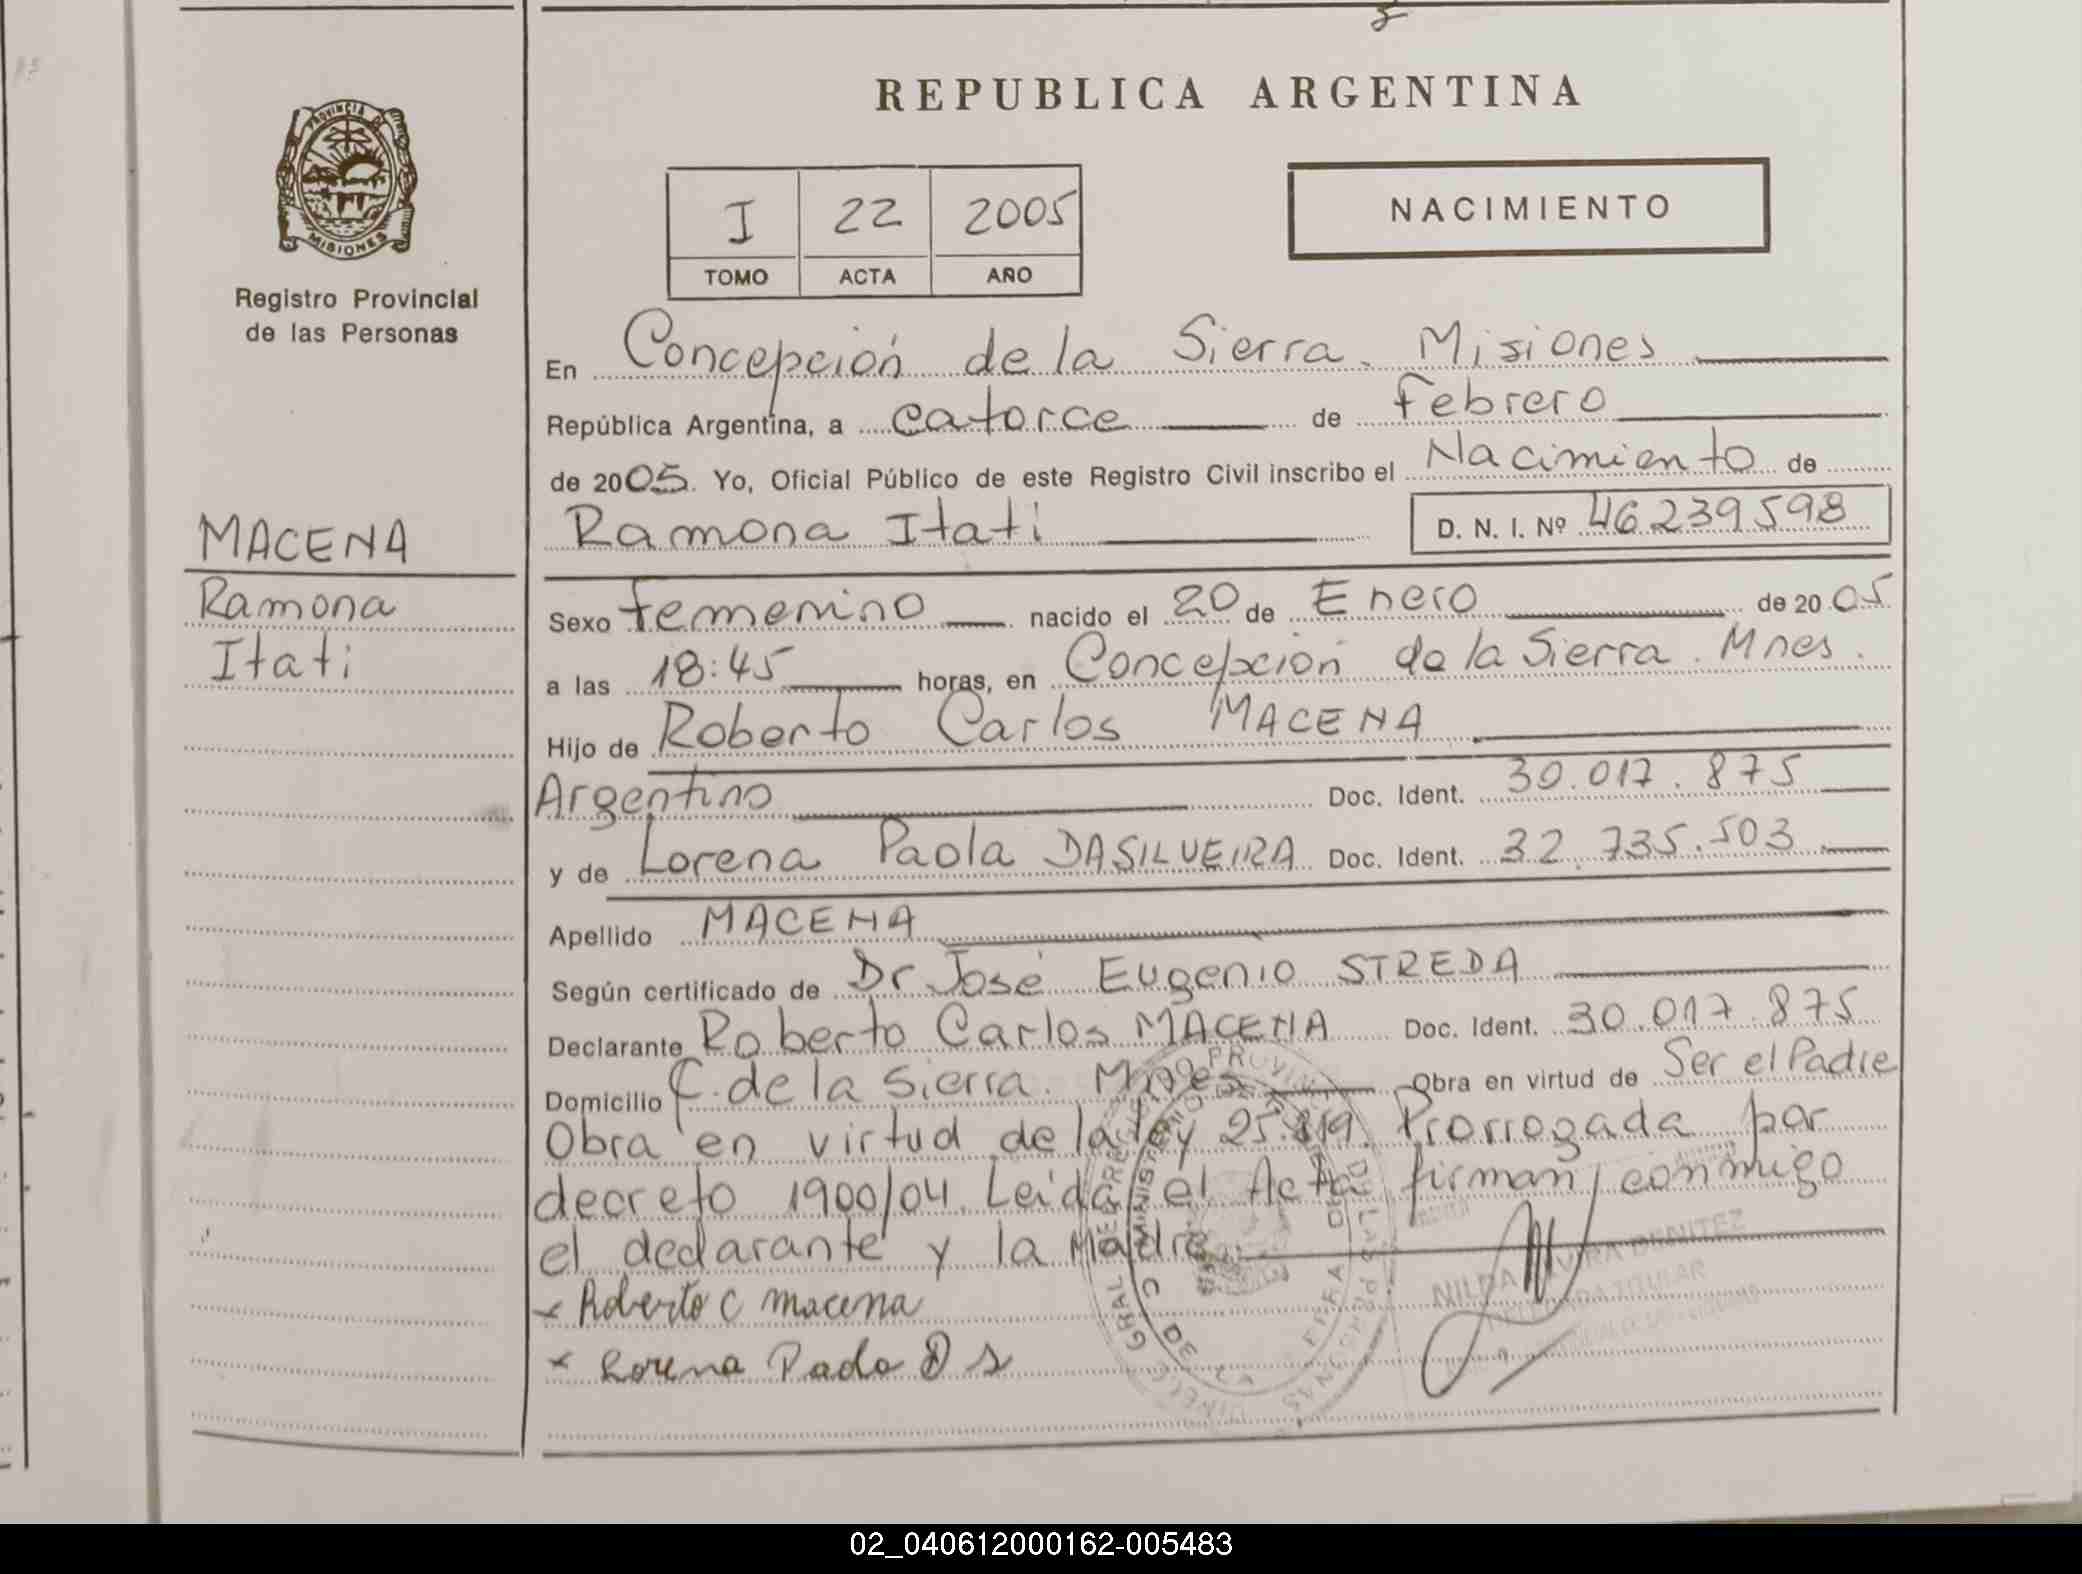 REPUBLICA ARGENTINA
PROVINCIA DE
MISIONES
Registro Provincial
de las Personas
I 22 2005
TOMO ACTA AÑO
NACIMIENTO
En Concepción de la Sierra. Misiones
República Argentina, a catorce de Febrero
de 2005. Yo, Oficial Público de este Registro Civil inscribo el Nacimiento de
Ramona Itati D. N. I. Nº 46.239.598
MACENA
Ramona
Itati
Sexo femenino nacido el 20 de Enero de 2005
a las 18:45 horas, en Concepción de la Sierra. Mnes.
Hijo de Roberto Carlos MACENA
Argentino Doc. Ident. 30.017.875
y de Lorena Paola DASILVEIRA Doc. Ident. 32.735.503
Apellido MACENA
Según certificado de Dr José Eugenio STREDA
Declarante Roberto Carlos MACENA Doc. Ident. 30.017.875
Domicilio C. de la Sierra. Mnes Obra en virtud de Ser el Padre
Obra en virtud de la ley 25.819. Prorrogada por
decreto 1900/04. Leida el Acta firman conmigo
el declarante y la Madre.
x Roberto C macena
x Lorena Paola D S
NILDA ELVIRA BENITEZ
TITULAR
02_040612000162-005483